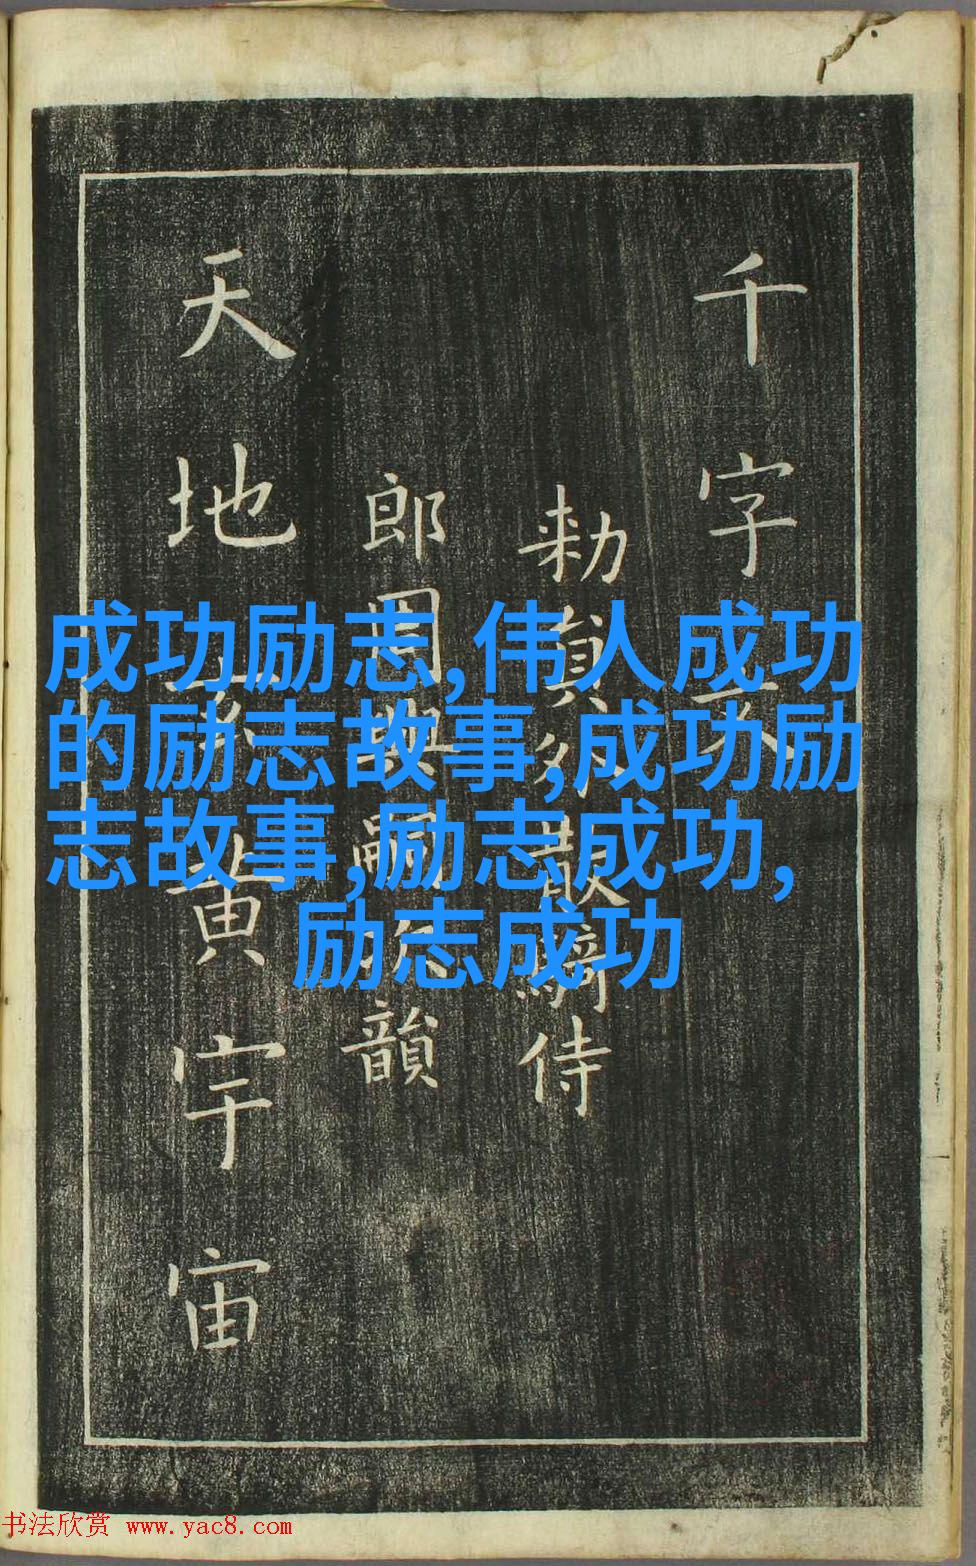 千字文
勑員外散騎侍
郎周興嗣次韻
天地玄黃宇宙
成功励志,伟人成功
的励志故事,成功励
志故事,励志成功,
励志成功
书法欣赏 www.yac8.com